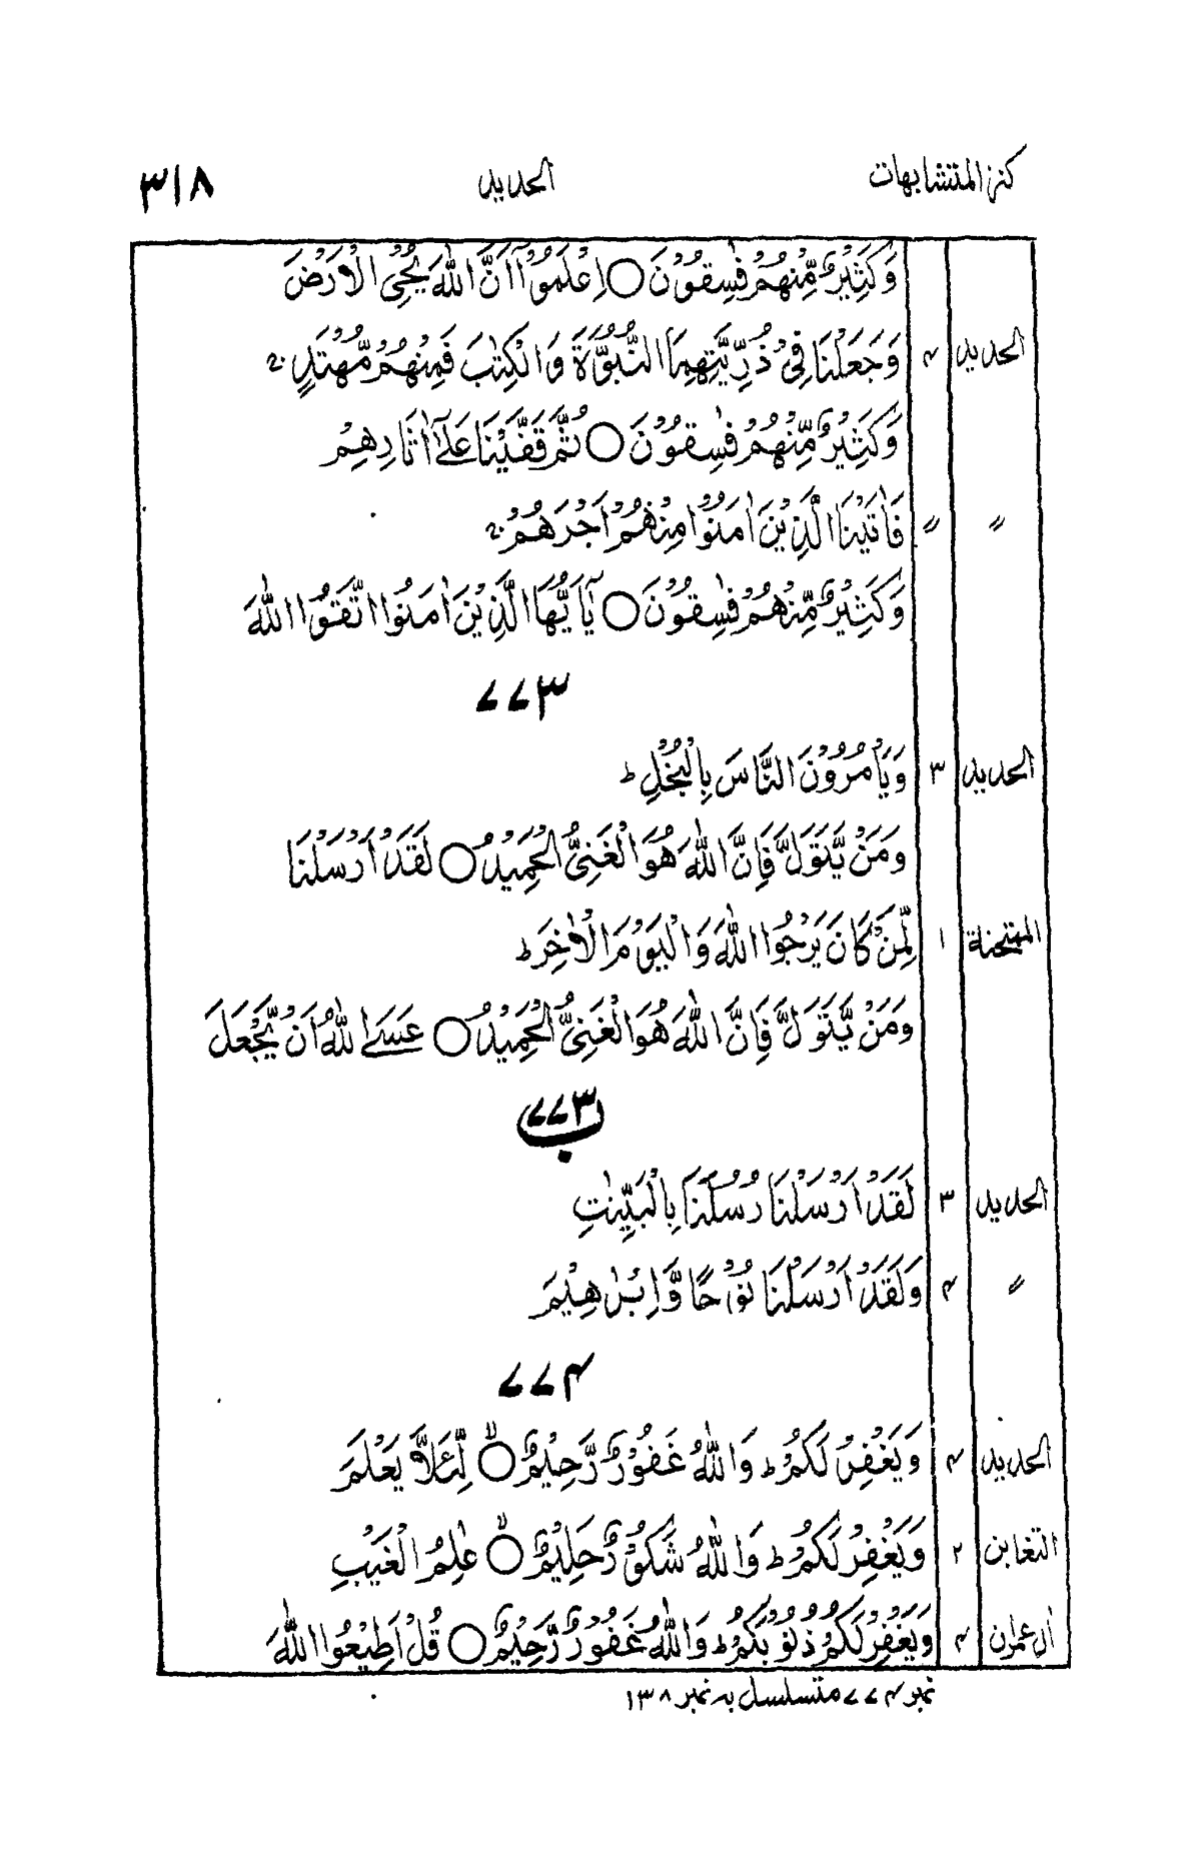 كنز المتشابهات الحديد ٣١٨
وَكَثِيْرٌ مِّنْهُمْ فٰسِقُوْنَ ○ اِعْلَمُوْۤا اَنَّ اللّٰهَ يُحْيِ الْاَرْضَ
الحديد ۴ وَجَعَلْنَا فِيْ ذُرِّيَّتِهِمَا النُّبُوَّةَ وَالْكِتٰبَ فَمِنْهُمْ مُّهْتَدٍ ۚ
وَكَثِيْرٌ مِّنْهُمْ فٰسِقُوْنَ ○ ثُمَّ قَفَّيْنَا عَلٰۤى اٰثَارِهِمْ
〃 〃 فَاٰتَيْنَا الَّذِيْنَ اٰمَنُوْا مِنْهُمْ اَجْرَهُمْ ۚ
وَكَثِيْرٌ مِّنْهُمْ فٰسِقُوْنَ ○ يٰۤاَيُّهَا الَّذِيْنَ اٰمَنُوا اتَّقُوا اللّٰهَ
۷۷۳
الحديد ٣ وَيَأْمُرُوْنَ النَّاسَ بِالْبُخْلِ ؕ
وَمَنْ يَّتَوَلَّ فَاِنَّ اللّٰهَ هُوَ الْغَنِيُّ الْحَمِيْدُ ○ لَقَدْ اَرْسَلْنَا
الممتحنة ١ لِّمَنْ كَانَ يَرْجُوا اللّٰهَ وَالْيَوْمَ الْاٰخِرَ ؕ
وَمَنْ يَّتَوَلَّ فَاِنَّ اللّٰهَ هُوَ الْغَنِيُّ الْحَمِيْدُ ○ عَسَى اللّٰهُ اَنْ يَّجْعَلَ
۷۷۳ ب
الحديد ٣ لَقَدْ اَرْسَلْنَا رُسُلَنَا بِالْبَيِّنٰتِ
〃 ۴ وَلَقَدْ اَرْسَلْنَا نُوْحًا وَّاِبْرٰهِيْمَ
۷۷۴
الحديد ۴ وَيَغْفِرْ لَكُمْ ؕ وَاللّٰهُ غَفُوْرٌ رَّحِيْمٌ ○ لِّئَلَّا يَعْلَمَ
التغابن ٢ وَيَغْفِرْ لَكُمْ ؕ وَاللّٰهُ شَكُوْرٌ حَلِيْمٌ ○ عٰلِمُ الْغَيْبِ
اٰل عمرٰن ۴ وَيَغْفِرْ لَكُمْ ذُنُوْبَكُمْ ؕ وَاللّٰهُ غَفُوْرٌ رَّحِيْمٌ ○ قُلْ اَطِيْعُوا اللّٰهَ
نمبر ۷۷۴ متسلسل به نمبر ١٣٨